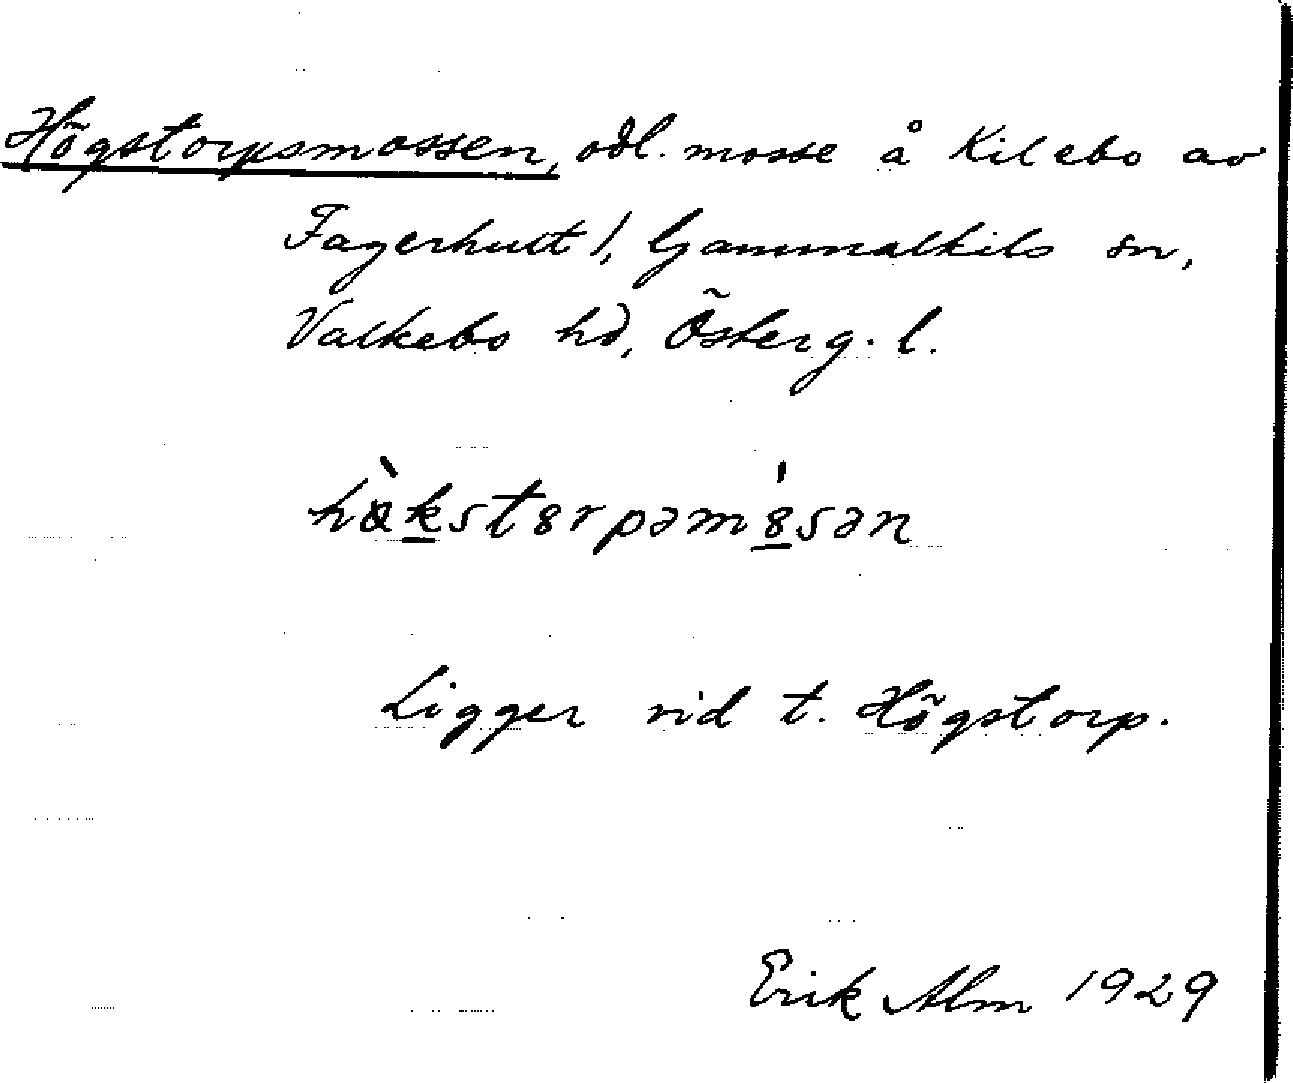 Högstorpsmossen, odl. mosse å Kilebo av
Fagerhult 1, Gammalkils sn,
Valkebo hd, Österg. l.
hɵ̀ks̠t8rpəm8̠́sən
Ligger vid t. Högstorp.
Erik Alm 1929